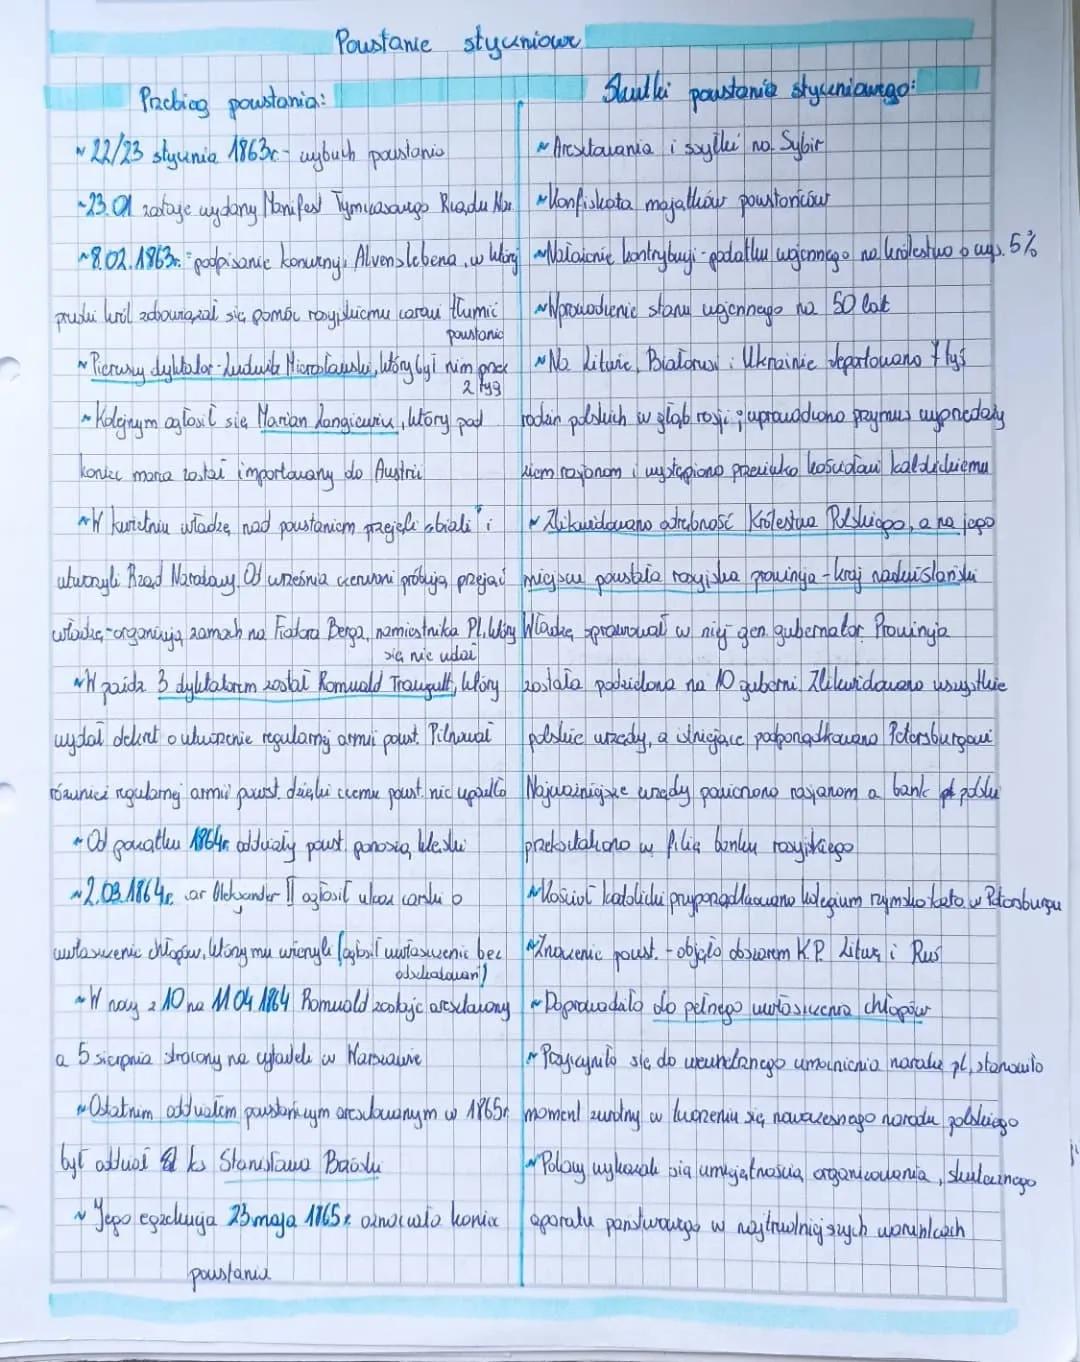 Powstanie styczniowe
Przebieg powstania:
~ 22/23 stycznia 1863r - wybuch powstania
~23.01 zostaje wydany Manifest Tymczasowego Rządu Nar.
~8.02.1863r. - podpisanie konwencji Alvenslebena, w której
pruski król zobowiązał się pomóc rosyjskiemu carowi tłumić
powstanie
~ Pierwszy dyktator - Ludwik Mierosławski, który był nim przez
2 tyg
~ Kolejnym ogłosił się Marian Langiewicz, który pod
koniec marca został importowany do Austrii
~W kwietniu władzę nad powstaniem przejęli „biali" i
utworzyli Rząd Narodowy. Od września czerwoni próbują przejąć
władzę - organizują zamach na Fiodora Berga, namiestnika Pl, który
się nie udał
~W paźdz 3 dyktatorem został Romuald Traugutt, który
wydał dekret o utworzenie regularnej armii powst. Pilnował
również regularnej armii powst. dzięki czemu powst. nie upadło
~ Od początku 1864r. oddziały powst. ponoszą klęski
~2.03.1864r. car Aleksander II ogłosił ukaz carski o
uwłaszczenie chłopów, którzy mu wierzyli (ogłosił uwłaszczenie bez
odszkodowań)
~W nocy z 10 na 11 04 1864 Romuald zostaje aresztowany
a 5 sierpnia stracony na cytadeli w Warszawie
~Ostatnim oddziałem powstańczym aresztowanym w 1865r
był oddział ks Stanisława Brzóski
~ Jego egzekucja 23 maja 1865r. oznaczała koniec
powstania
Skutki powstania styczniowego:
~ Aresztowania i zsyłki na Sybir
~Konfiskata majątków powstańców
~Nałożenie kontrybucji - podatku wojennego na królestwo o wys. 5%
~Wprowadzenie stanu wojennego na 50 lat
~Na Litwie, Białorusi i Ukrainie deportowano 7 tyś
rodzin polskich w głąb rosji; wprowadzono przymus wyprzedaży
ziem rosjanom i wystąpiono przeciwko kościołowi katolickiemu
~ Zlikwidowano odrębność Królestwa Polskiego, a na jego
miejscu powstała rosyjska prowincja - kraj nadwiślański
Władzę sprawował w niej gen. gubernator. Prowincja
została podzielona na 10 guberni. Zlikwidowano wszystkie
polskie urzędy, a istniejące podporządkowano Petersburgowi
Najważniejsze urzędy powierzono rosjanom a bank polski
przekształcono w filię banku rosyjskiego
~Kościół katolicki przyporządkowano kolegium rzymsko kato w Petersburgu
~Znaczenie powst. - objęło obszarem K.P. Litwę i Ruś
~Doprowadziło do pełnego uwłaszczenia chłopów
~ Przyczyniło się do wewnętrznego umocnienia narodu pl, stanowiło
moment zwrotny w tworzeniu się nowoczesnego narodu polskiego
~Polacy wykazali się umiejętnością organizowania, skutecznego
aparatu państwowego w najtrudniejszych warunkach